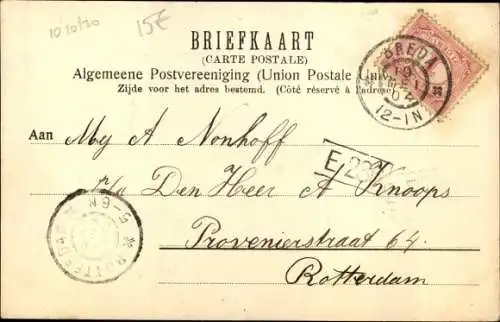 10 10/20
15€
BRIEFKAART
(CARTE POSTALE)
Algemeene Postvereeniging (Union Postale
Zijde voor het adres bestemd. (Côté réservé à
BREDA
12-1N
Aan Mej A Nonhoff
E/23
p/a Den Heer A Knoops
Provenierstraat 64.
Rotterdam
5-6N
ROTTERDAM